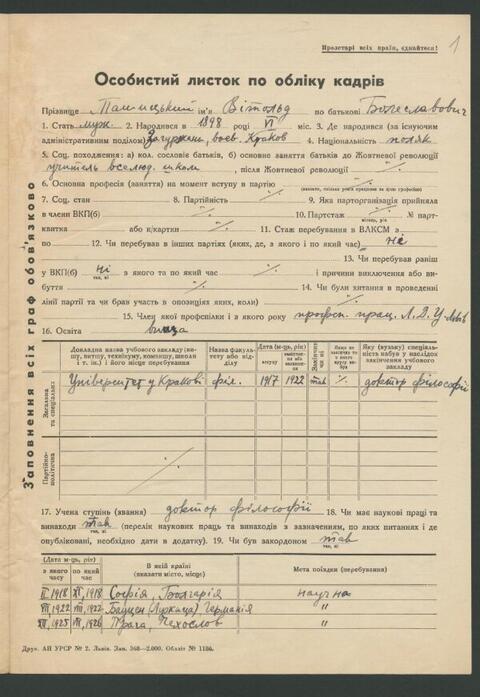 Пролетарі всіх країн, єднайтеся!
1
Особистий листок по обліку кадрів
Прізвище Ташицький ім'я Вітольд по батькові Болеславович
1. Стать муж. 2. Народився в 1898 році VI міс. 3. Де народився (за існуючим
адміністративним поділом) воєв. Краков 4. Національність поляк
5. Соц. походження: а) кол. сословіє батьків, б) основне заняття батьків до Жовтневої революції
учитель вселюд. школи, після Жовтневої революції ·/.
6. Основна професія (заняття) на момент вступу в партію ·/.
7. Соц. стан ·/. 8. Партійність ·/. 9. Яка парторганізація прийняла
в члени ВКП(б) ·/. 10. Партстаж ·/. № парт-
квитка або к/картки ·/. 11. Стаж перебування в ВЛКСМ з
по ·/. 12. Чи перебував в інших партіях (яких, де, з якого і по який час) ні
13. Чи перебував раніш
у ВКП(б) ні з якого та по який час ·/. і причини виключення або ви-
буття ·/. 14. Чи були хитання в проведенні
лінії партії та чи брав участь в опозиціях яких, коли) ·/.
15. Член якої профспілки і з якого року професп. прац. Л.Д.У. Львів
16. Освіта вища
Заповнення всіх граф обов'язково
Докладна назва учбового закладу (ви-
шу, втишу, технікуму, комвишу, школи
і т. ін.) і його місце перебування
Назва факуль-
тету або від-
ділу
Дата (м-ць, рік)
вступу
Закінчив
чи ні
Яку (вузьку) спеціаль-
ність набув у наслідок
закінчення учбового
закладу
Загальна
та спеціальна
Університет у Кракові філ. 1917 1922 так ·/. доктор філософії
Партійно-
політична
·/.
17. Учена ступінь (звання) доктор філософії 18. Чи має наукові праці та
винаходи так (перелік наукових праць та винаходів з зазначенням, по яких питаннях і де
опубліковані, необхідно дати в додатку). 19. Чи був закордоном так
Дата (м-ць, рік)
з якого часу
по який час
В якій країні
(вказати місто, місце)
Мета поїздки (перебування)
II, 1918 XI, 1918 Софія, Болгарія научна
VII, 1922 VIII, 1922 Бауцен (Лужица), Германія "
XI, 1925 VI, 1926 Прага, Чехослов. "
Друк. АН УРСР № 2. Львів. Зам. 568—2.000. Обліт № 1186.